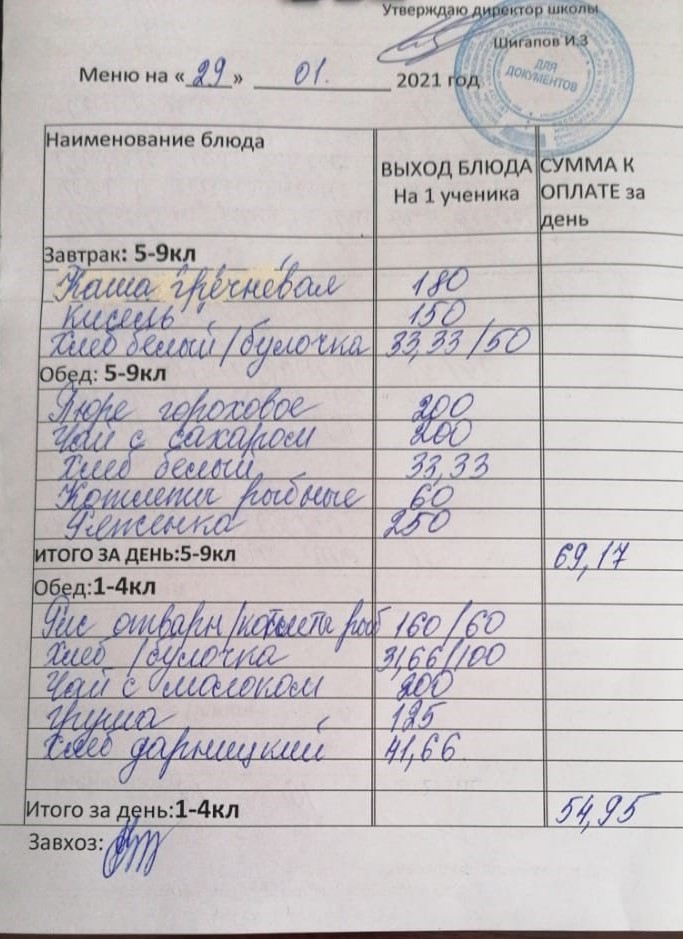 Утверждаю директор школы
Шигапов И.З
ДЛЯ ДОКУМЕНТОВ
Меню на «29» 01. 2021 год
Наименование блюда ВЫХОД БЛЮДА На 1 ученика СУММА К ОПЛАТЕ за день
Завтрак: 5-9кл
Каша гречневая 180
Кисель 150
Хлеб белый/булочка 33,33/50
Обед: 5-9кл
Пюре гороховое 200
Чай с сахаром 200
Хлеб белый 33,33
Котлеты рыбные 60
Ряженка 250
ИТОГО ЗА ДЕНЬ:5-9кл 69,17
Обед:1-4кл
Рис отварн/котлеты рыб 160/60
Хлеб/булочка 31,66/100
Чай с молоком 200
груша 125
Хлеб дарницкий 41,66
Итого за день:1-4кл 54,95
Завхоз: